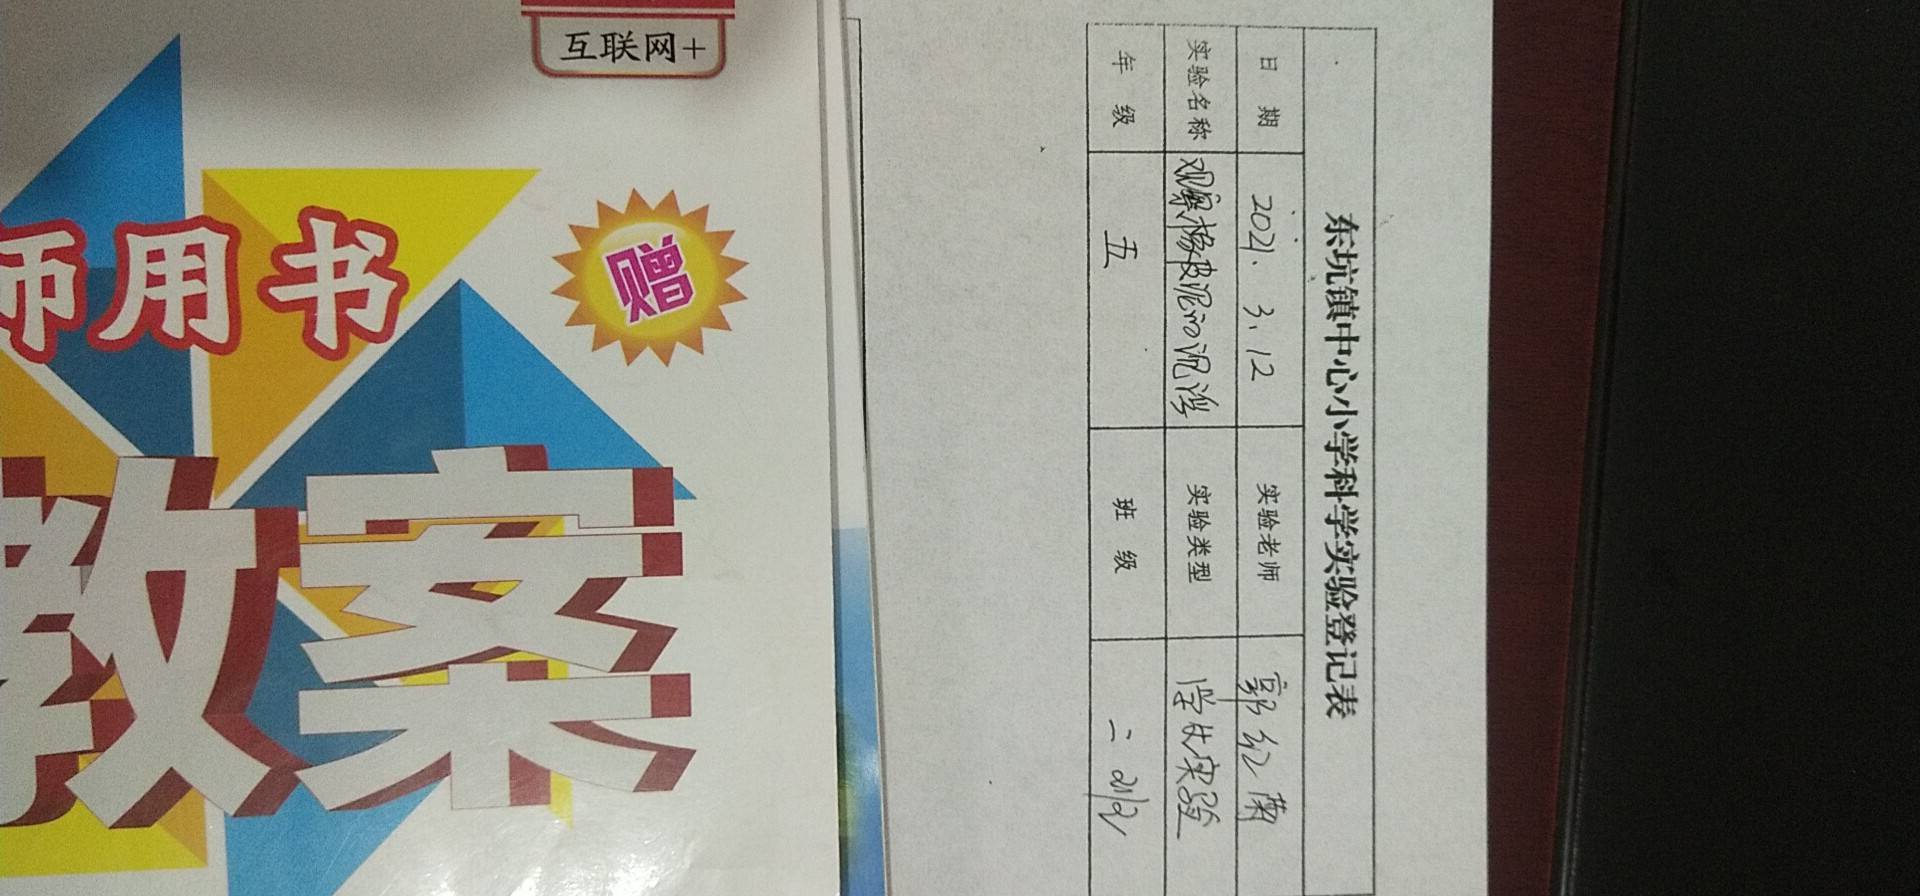 互联网+
赠
师用书
教案
东坑镇中心小学科学实验登记表
日期 2021.3.12 实验老师 郭红
实验名称 观察橡皮泥的沉浮 实验类型 学生实验
年级 五 班级 二